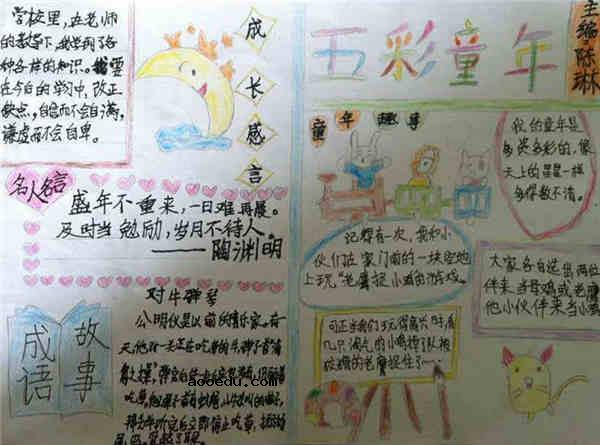 学校里,在老师
的教导下,我学到了各
种各样的知识。我要
在今后的学习中,改正
缺点,自信而不会自满,
谦虚而不会自卑。
成长感言
五彩童年
主编:陈琳
童年趣事
我的童年是
多姿多彩的,像
天上的星星一样
多得数不清。
名人名言
盛年不重来,一日难再晨。
及时当勉励,岁月不待人。
——陶渊明
记得有一次,我和小
伙们在家门前的一块空地
上玩“老鹰捉小鸡的游戏。
大家各自选出两位
伴来当母鸡或老鹰
他小伙伴来当小鸡
可正当我们玩得高兴时,有
几只淘气的小鸡掉了队被
狡猾的老鹰捉住了……
成语故事
对牛弹琴
公明仪是以前的音乐家。有一
天,他对一头正在吃草的牛,弹了首“清
吃草,
立即停止吃草,
aooedu.com